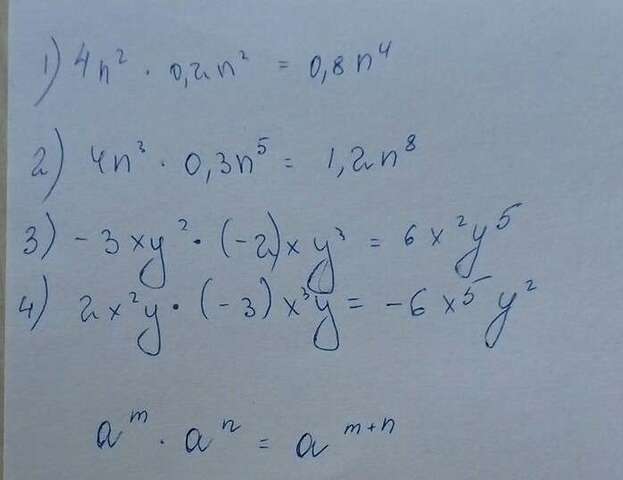 1) 4n² · 0,2n² = 0,8n⁴
2) 4n³ · 0,3n⁵ = 1,2n⁸
3) -3xy² · (-2)xy³ = 6x²y⁵
4) 2x²y · (-3)x³y = -6x⁵y²
aᵐ · aⁿ = aᵐ⁺ⁿ